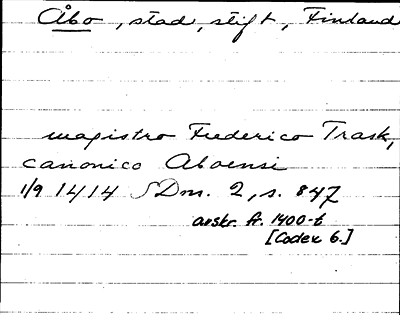 Åbo, stad, stift, Finland
magistro Frederico Trask,
canonico Aboensi
1/9 1414 SDns. 2, s. 847
avskr. fr. 1400-t
[Codex 6.]